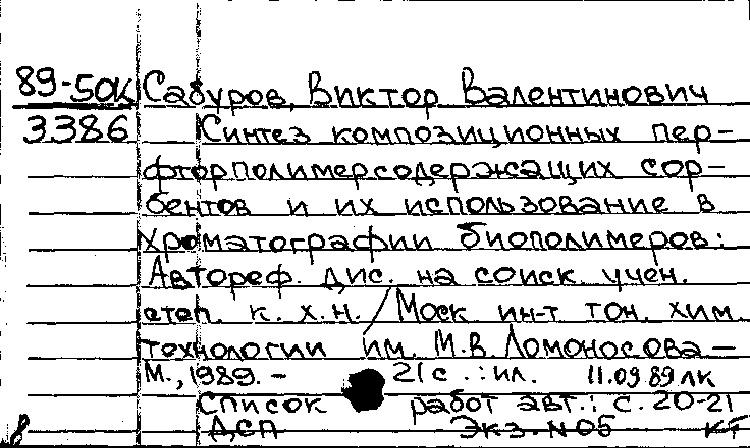 89-50к Сабуров, Виктор Валентинович
3386 Синтез композиционных пер-
фторполимерсодержащих сор-
бентов и их использование в
хроматографии биополимеров:
Автореф. дис. на соиск. учен.
степ. к. х.н. / Моск ин-т тон. хим.
технологии им. М.В. Ломоносова —
М., 1989. - 21 с. : ил. 11.09 89 лк
Список работ авт.: с. 20-21
ДСП Экз. N 05 КТ